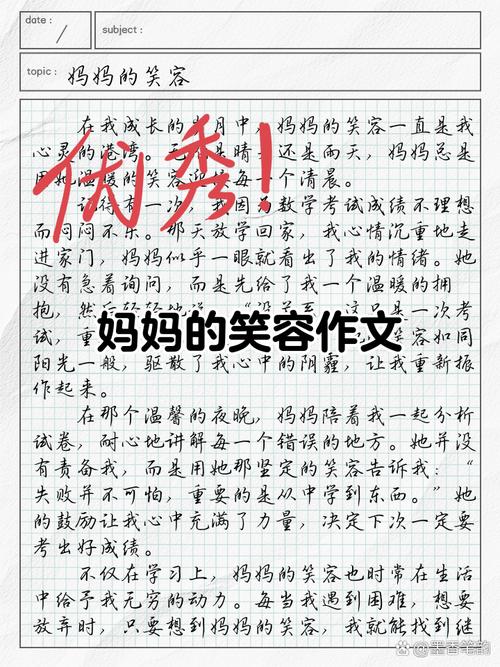 date:
/
subject:
topic: 妈妈的笑容
在我成长的岁月中，妈妈的笑容一直是我
心灵的港湾。无论是晴天还是雨天，妈妈总是
用她温暖的笑容迎接每一个清晨。
记得有一次，我因为数学考试成绩不理想
而闷闷不乐。那天放学回家，我心情沉重地走
进家门，妈妈似乎一眼就看出了我的情绪。她
没有急着询问，而是先给了我一个温暖的拥
抱，然后轻轻地说：“没关系，这只是一次考
试，重
笑容如同
阳光一般，驱散了我心中的阴霾，让我重新振
作起来。
在那个温馨的夜晚，妈妈陪着我一起分析
试卷，耐心地讲解每一个错误的地方。她并没
有责备我，而是用她那坚定的笑容告诉我：“
失败并不可怕，重要的是从中学到东西。”她
的鼓励让我心中充满了力量，决定下次一定要
考出好成绩。
不仅在学习上，妈妈的笑容也时常在生活
中给予我无穷的动力。每当我遇到困难，想要
放弃时，只要想到妈妈的笑容，我就能找到继
优秀！
妈妈的笑容作文
墨香笔韵